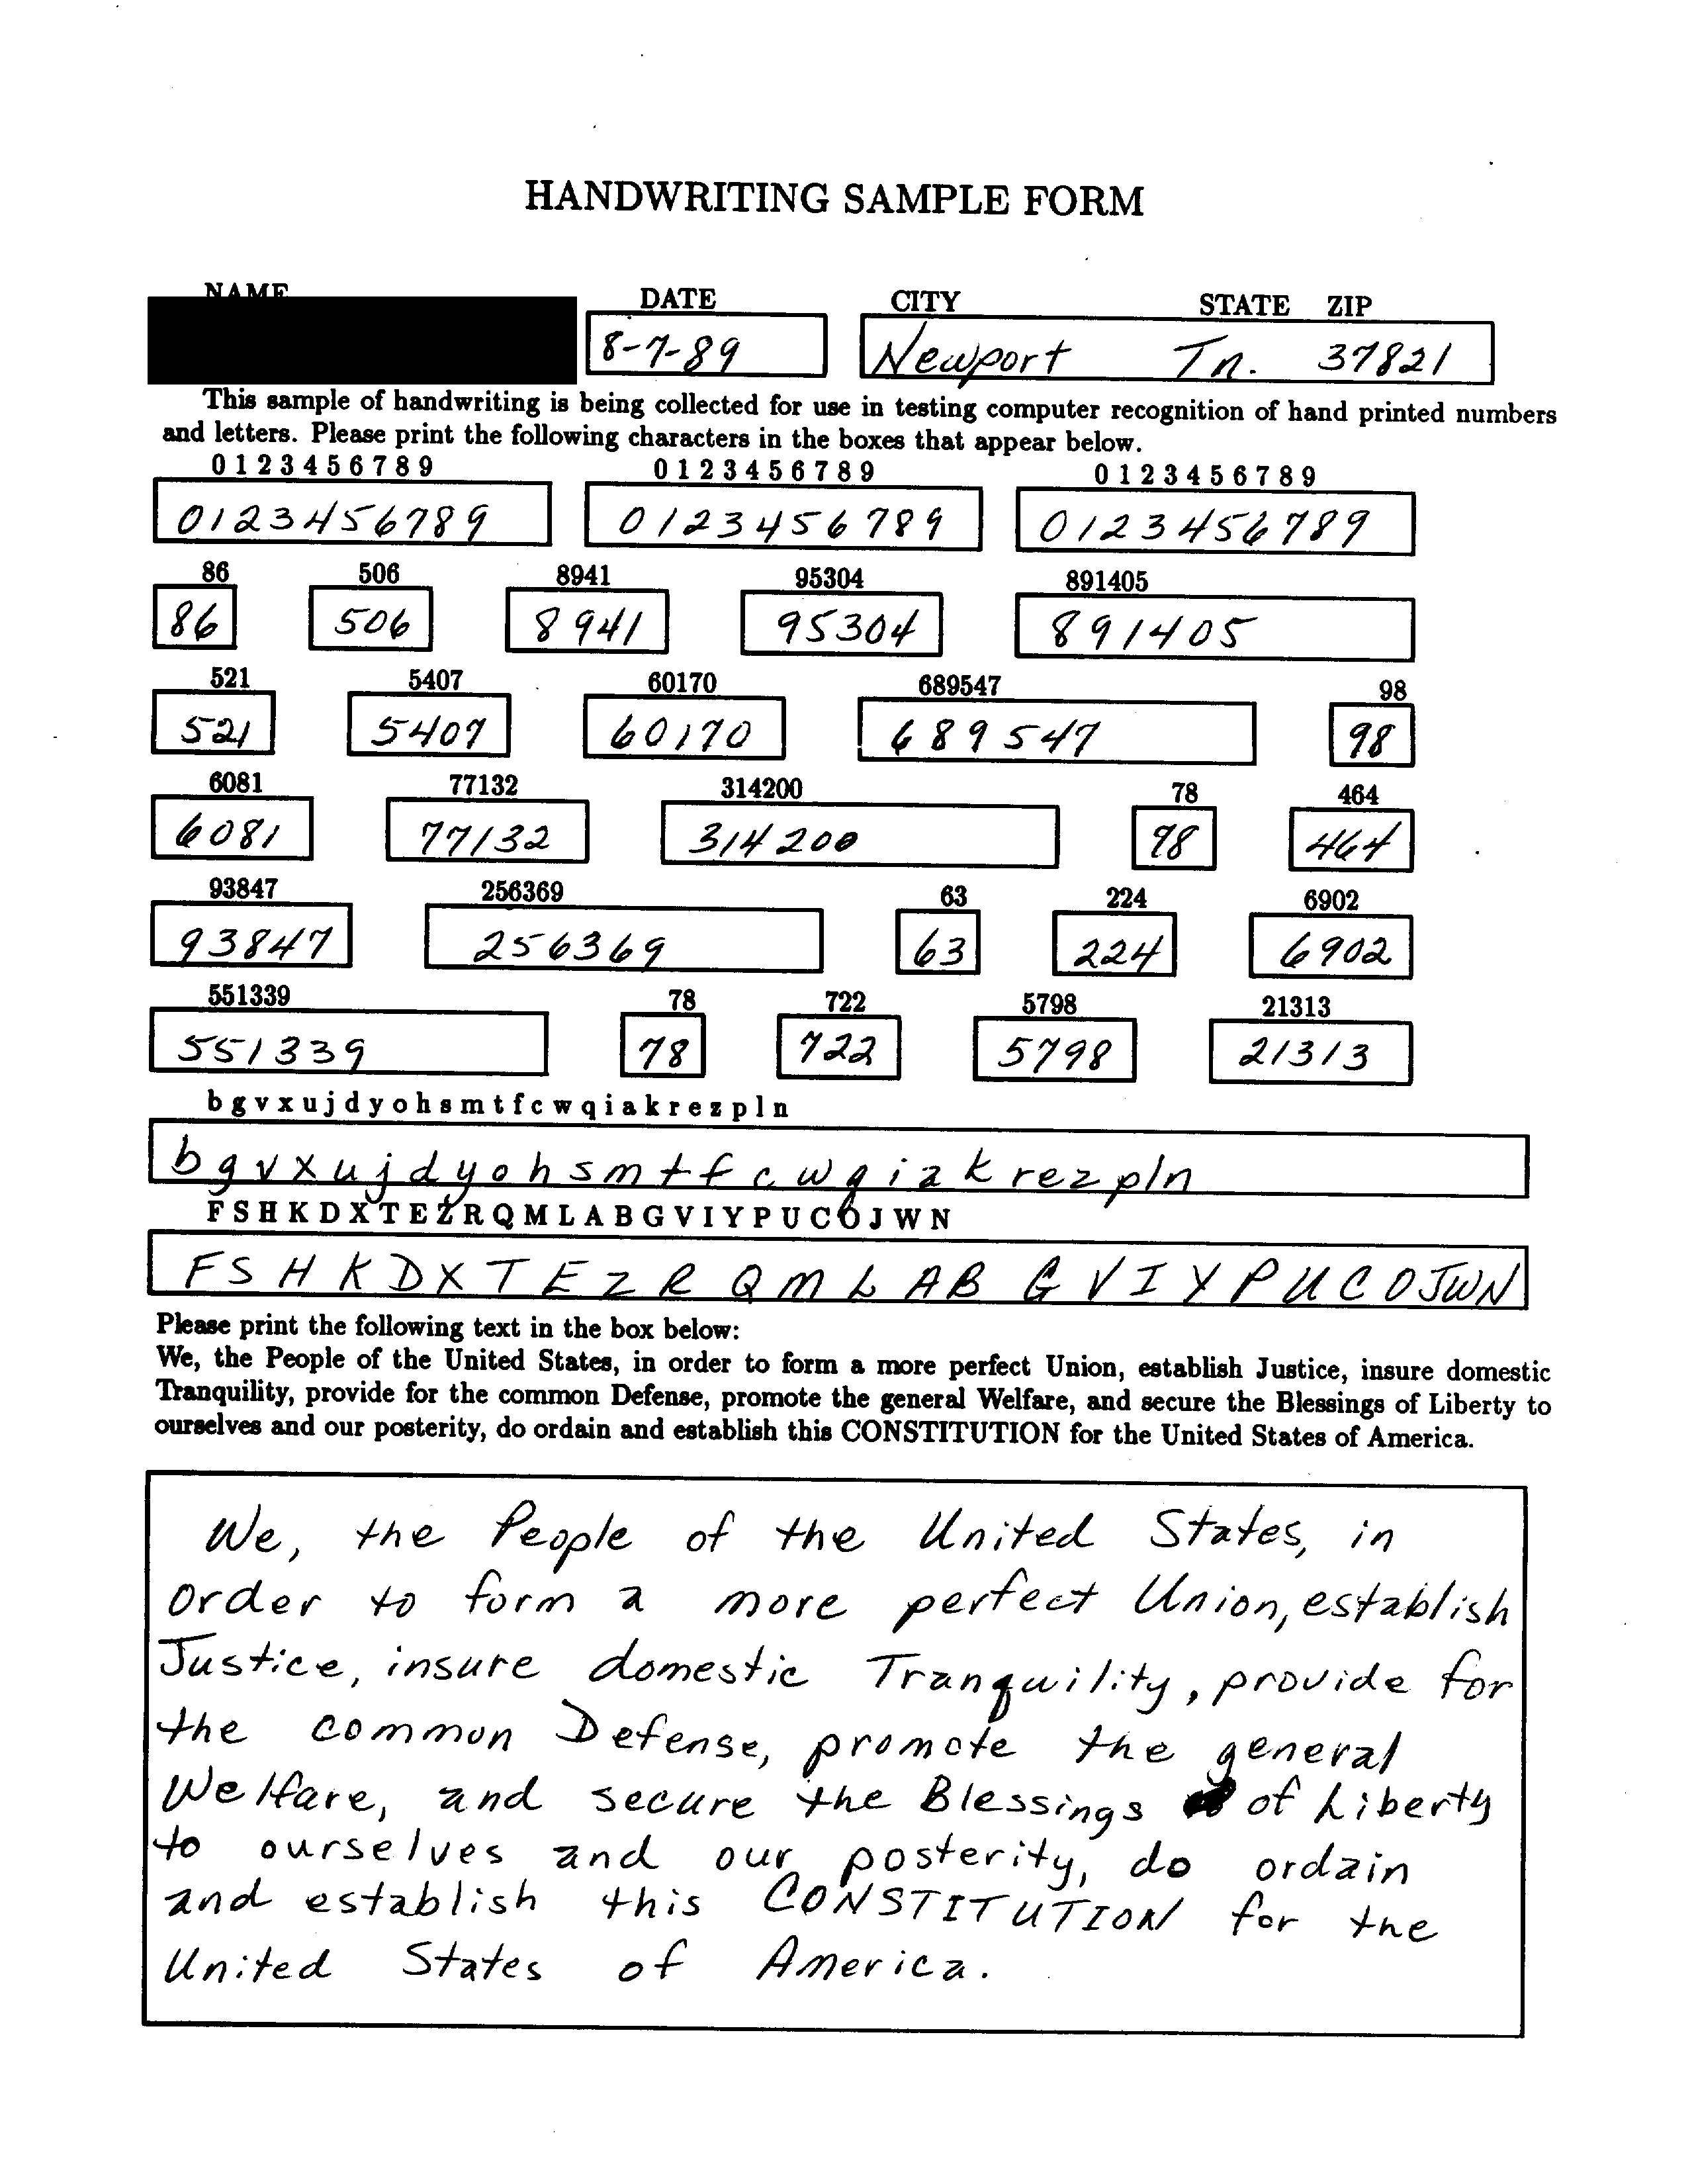 HANDWRITING SAMPLE FORM
NAME DATE CITY STATE ZIP
8-7-89 Newport Tn. 37821
This sample of handwriting is being collected for use in testing computer recognition of hand printed numbers
and letters. Please print the following characters in the boxes that appear below.
0 1 2 3 4 5 6 7 8 9 0 1 2 3 4 5 6 7 8 9 0 1 2 3 4 5 6 7 8 9
0123456789 0123456789 0123456789
86 506 8941 95304 891405
86 506 8941 95304 891405
521 5407 60170 689547 98
521 5407 60170 689547 98
6081 77132 314200 78 464
6081 77132 314200 78 464
93847 256369 63 224 6902
93847 256369 63 224 6902
551339 78 722 5798 21313
551339 78 722 5798 21313
b g v x u j d y o h s m t f c w q i a k r e z p l n
b g v x u j d y o h s m t f c w q i a k r e z p l n
F S H K D X T E Z R Q M L A B G V I Y P U C O J W N
F S H K D X T E Z R Q M L A B G V I Y P U C O J W N
Please print the following text in the box below:
We, the People of the United States, in order to form a more perfect Union, establish Justice, insure domestic
Tranquility, provide for the common Defense, promote the general Welfare, and secure the Blessings of Liberty to
ourselves and our posterity, do ordain and establish this CONSTITUTION for the United States of America.
We, the People of the United States, in
order to form a more perfect Union, establish
Justice, insure domestic Tranquility, provide for
the common Defense, promote the general
Welfare, and secure the Blessings of Liberty
to ourselves and our posterity, do ordain
and establish this CONSTITUTION for the
United States of America.